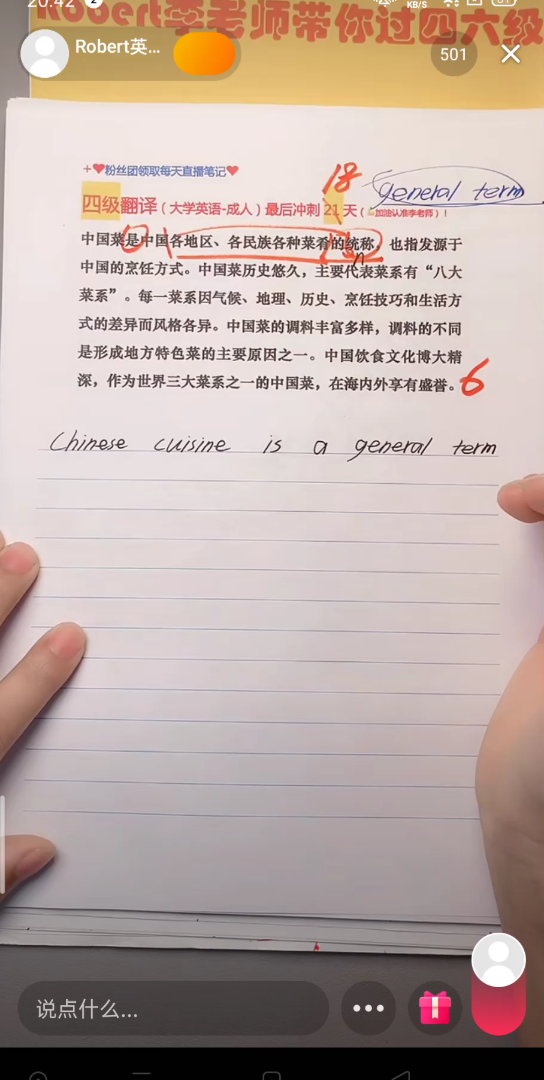 20:42
KB/S
Robert李老师带你过四六级
Robert英...
501
+❤粉丝团领取每天直播笔记❤
18
general term
四级翻译（大学英语-成人）最后冲刺 21 天（加油认准李老师）！
中国菜是中国各地区、各民族各种菜肴的统称，也指发源于
n
中国的烹饪方式。中国菜历史悠久，主要代表菜系有“八大
菜系”。每一菜系因气候、地理、历史、烹饪技巧和生活方
式的差异而风格各异。中国菜的调料丰富多样，调料的不同
是形成地方特色菜的主要原因之一。中国饮食文化博大精
深，作为世界三大菜系之一的中国菜，在海内外享有盛誉。6
Chinese cuisine is a general term
说点什么...